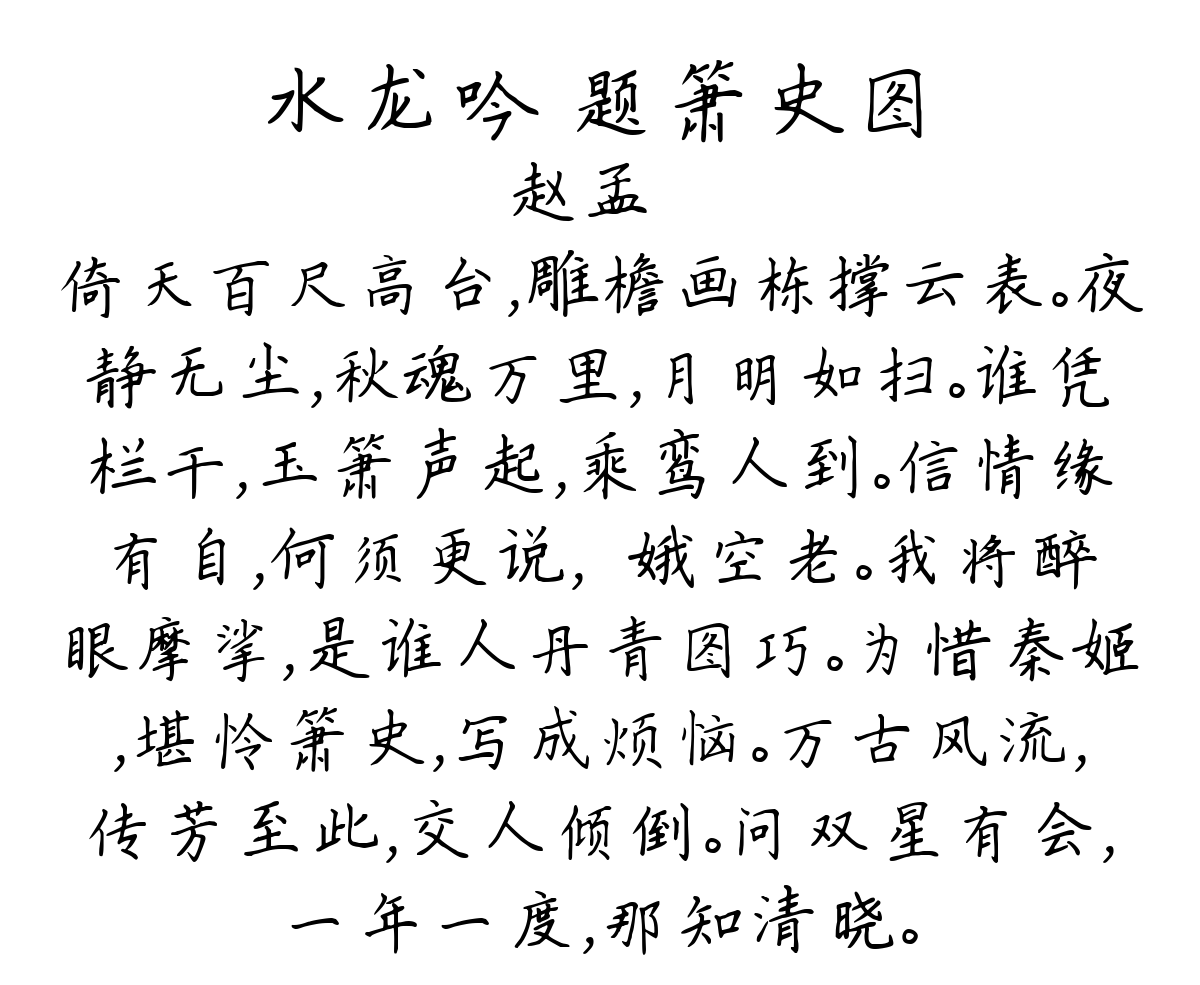 水龙吟 题箫史图
赵孟
倚天百尺高台,雕檐画栋撑云表。夜
静无尘,秋魂万里,月明如扫。谁凭
栏干,玉箫声起,乘鸾人到。信情缘
有自,何须更说, 娥空老。我将醉
眼摩挲,是谁人丹青图巧。为惜秦姬
,堪怜箫史,写成烦恼。万古风流,
传芳至此,交人倾倒。问双星有会,
一年一度,那知清晓。